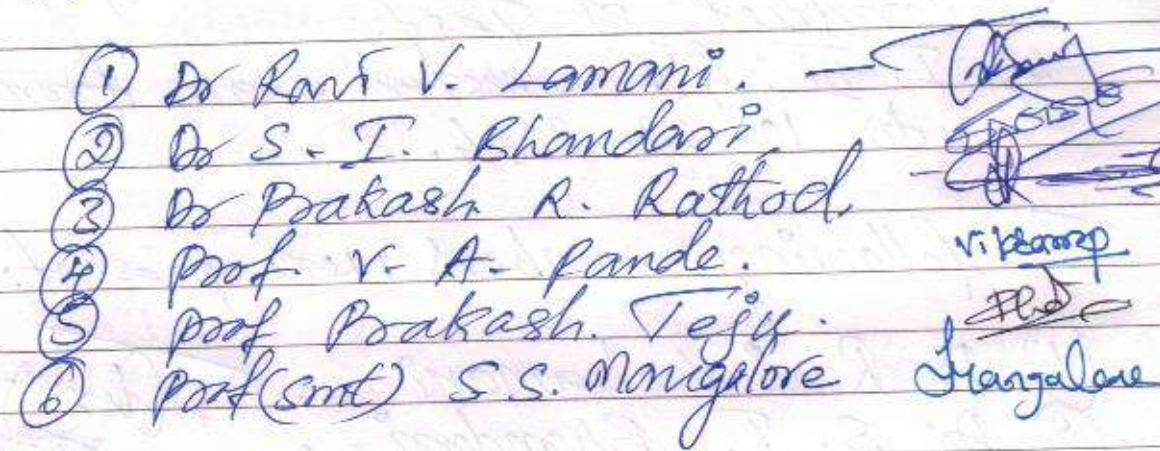 ① Dr Ravi V. Lamani.
② Dr S. I. Bhandari
③ Dr Prakash R. Rathod.
④ Prof. V. A. Pande.
⑤ Prof Prakash. Teju.
⑥ Prof (Smt) S S. Mangalore Mangalore